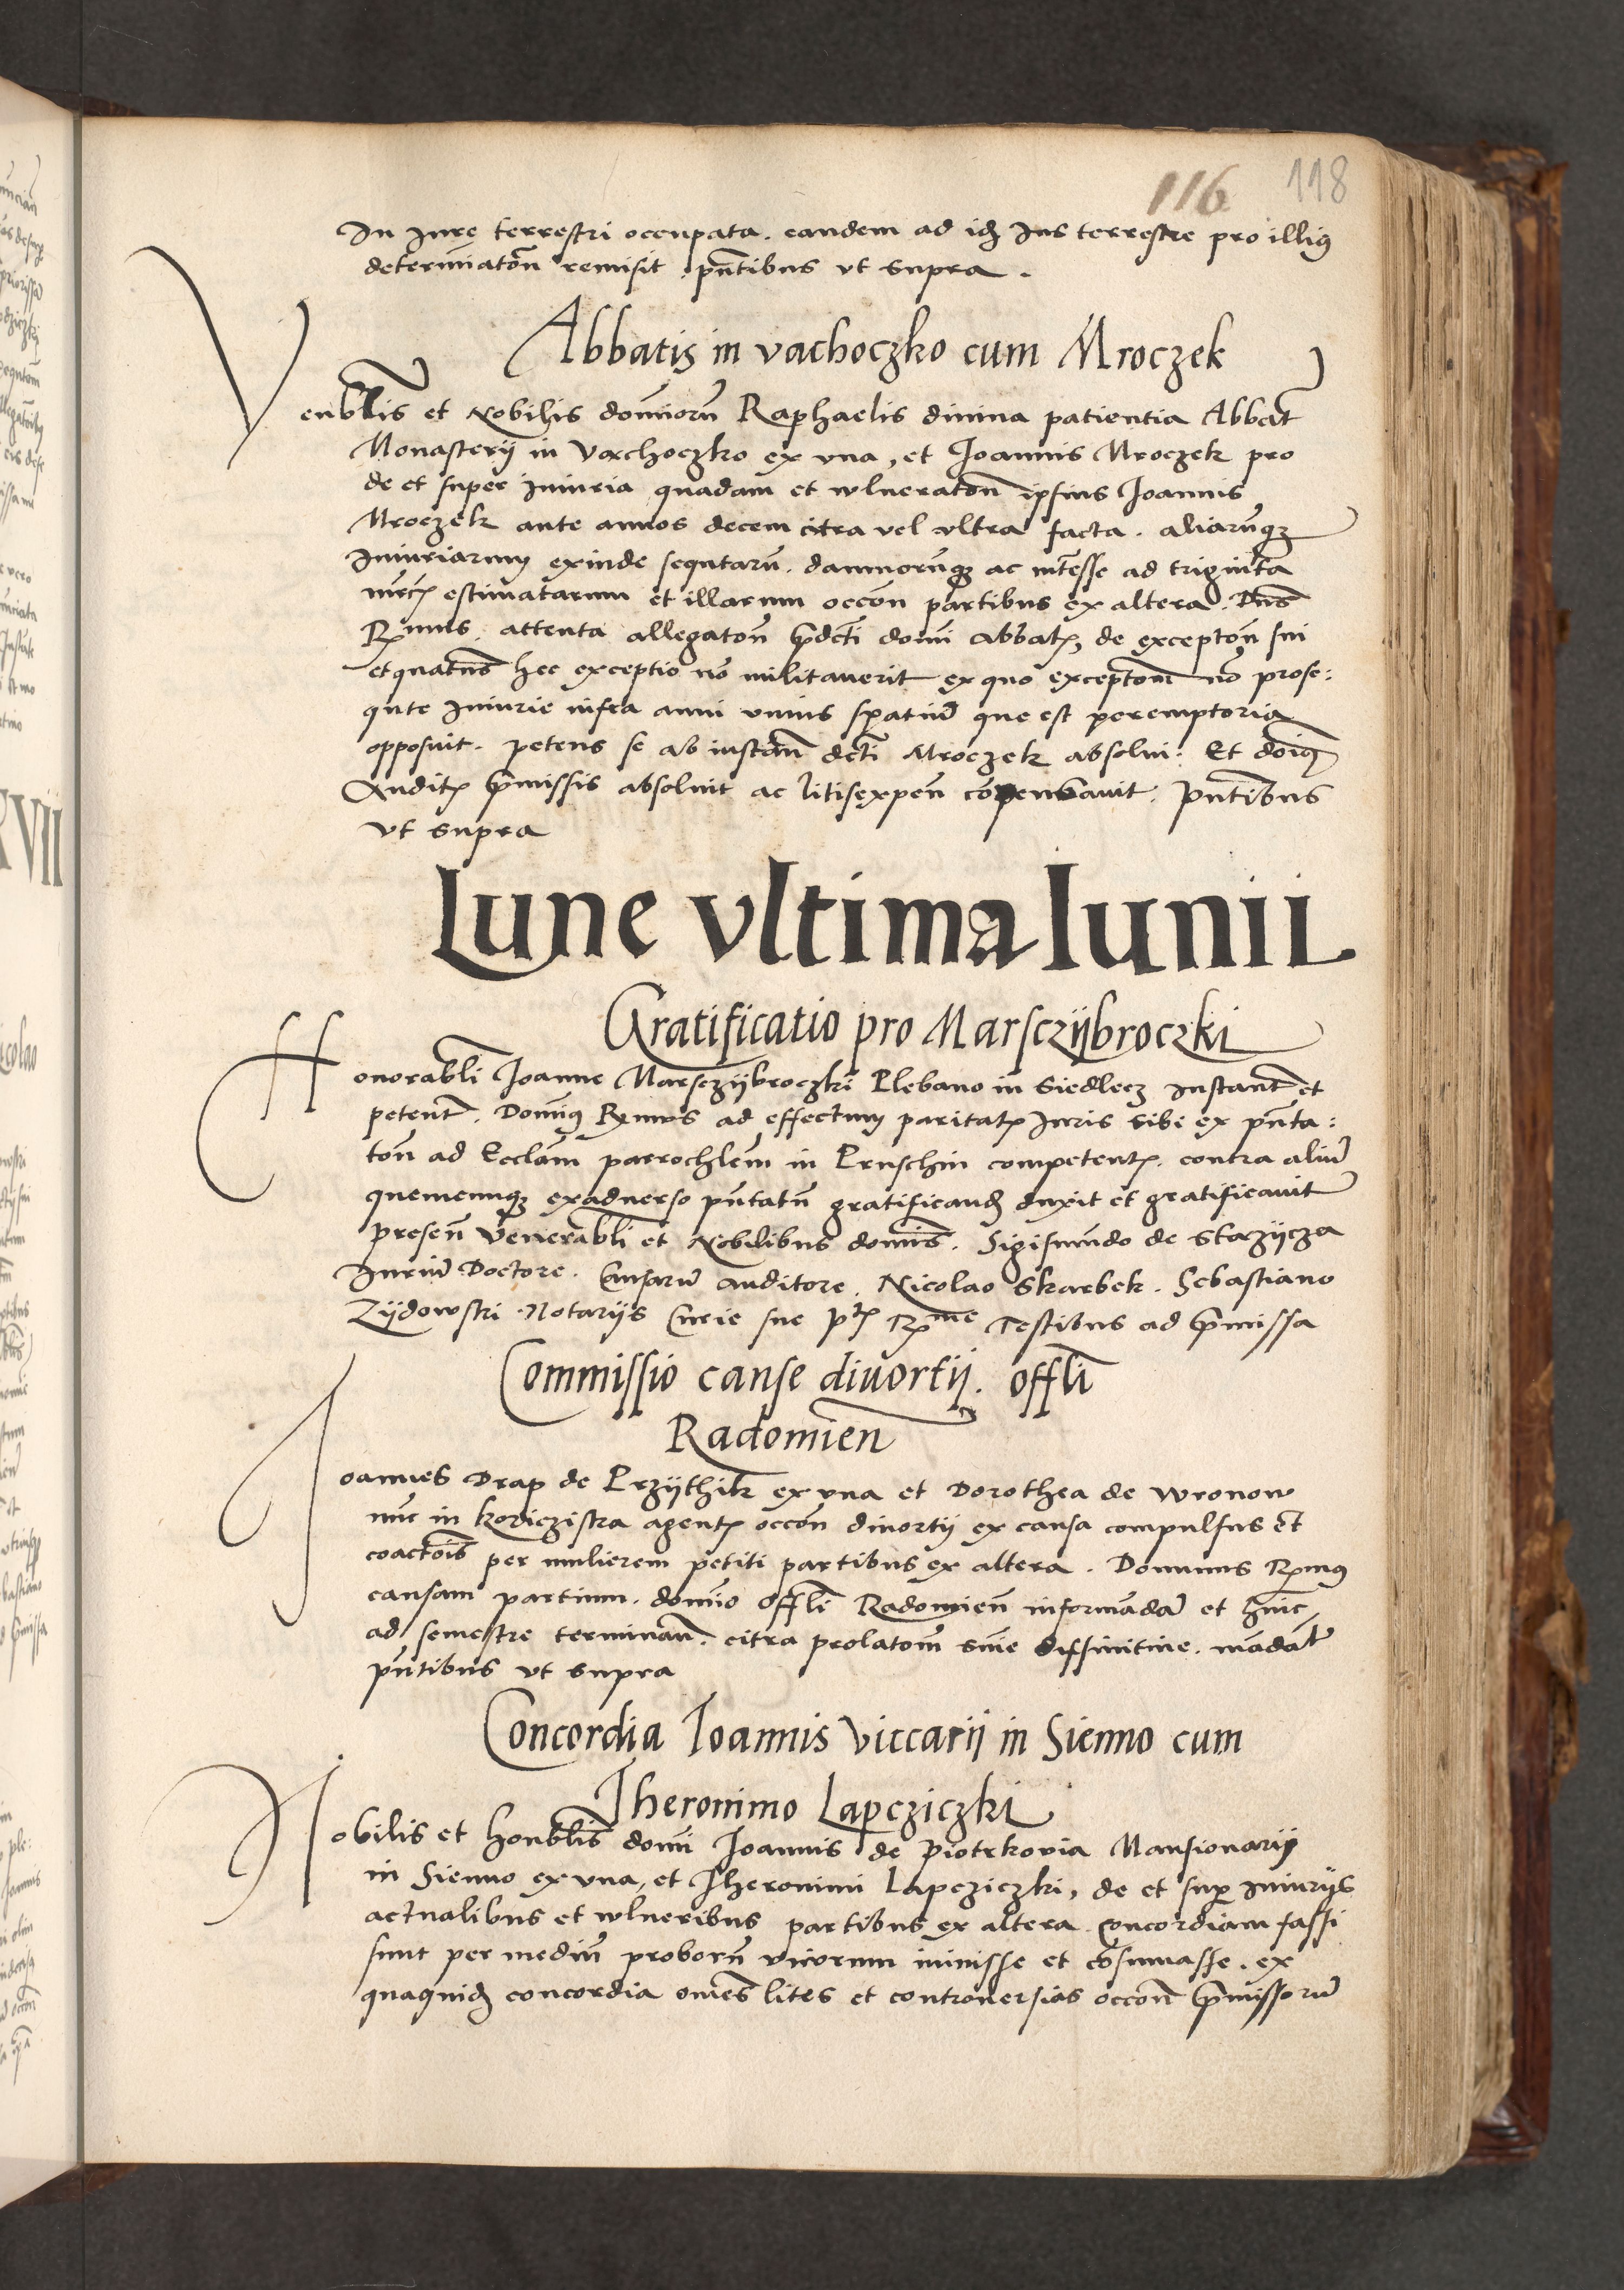 116 118
In Jure terrestri occupata. eandem ad id Jus terrestre pro illius
determinaton remisit. pntibus vt supra.
Abbatis in vachoczko cum Mroczek
Venblis et Nobilis dominoru Raphaelis diuina patientia Abbat
Monasterij in Vachoczko ex vna, et Joannis Mroczek pro
de et super Iniuria quadam et wlneraton ipsius Joannis
Mroczek ante annos decem citra vel vltra facta. aliarumq
Iniuriarum exinde sequtaru. damnorumq ac intesse ad triginta
mrcs estimatarum et illarum occon partibus ex altera. Dns
Rmus. attenta allegaton prdcti domi Abbatis, de exception sui
et quatns hec exceptio no militauerit ex quo exceptom no prose:
qute Iniurie infra anni vnius spatiu que est peremptoria
opposuit. petens se ab instan dcti Mroczek absolui: Et doiq
Auditis pmissis absoluit ac litisexpen copensauit. pntibus
vt supra
Lune vltima Iunii
Gratificatio pro Marsczijbroczki
Honorabli Joanne Marsczijbroczki Plebano in Siedlecz instant et
petent. Dominq Rmus ad effectum paritatis Iuris sibi ex pnta:
ton ad Ecclam parrochlem in Pruschin competentis. contra aliu
quemcunq exaduerso pntatu gratificand duxit et gratificauit
presen Venerabli et Nobilibus domis. Sigismundo de Stazijcza
Iuriu Doctore. Causaru auditore. Nicolao Skarbek. Sebastiano
Zijdowski. Notarijs Curie sue ptis Rme Testibus ad pmissa
Commissio cause diuortij. offli
Radomien
Joannes Drap de Przijthik ex vna et Dorothea de Wronow
nunc in Koricziska agentis occon diuortij ex causa compulsus et
coactois per mulierem petiti partibus ex altera. Dominus Rmus
causam partium. domio offli Radomien informanda et hinc
ad semestre terminan. citra prolatom snie diffinitiue. madat
pntibus vt supra
Concordia Ioannis Viccarij in Sienno cum
Iheronimo Lapcziczki
Nobilis et honblis domi Joannis de Piotrkovia Mansionarij
in Sienno ex vna, et Iheronimi Lapcziczki, de et sup Iniurijs
actualibus et wlneribus partibus ex altera. Concordiam fassi
sunt per mediu proboru virorum inijsse et cosumasse. ex
quaquid concordia omes lites et controuersias occon pmissoru